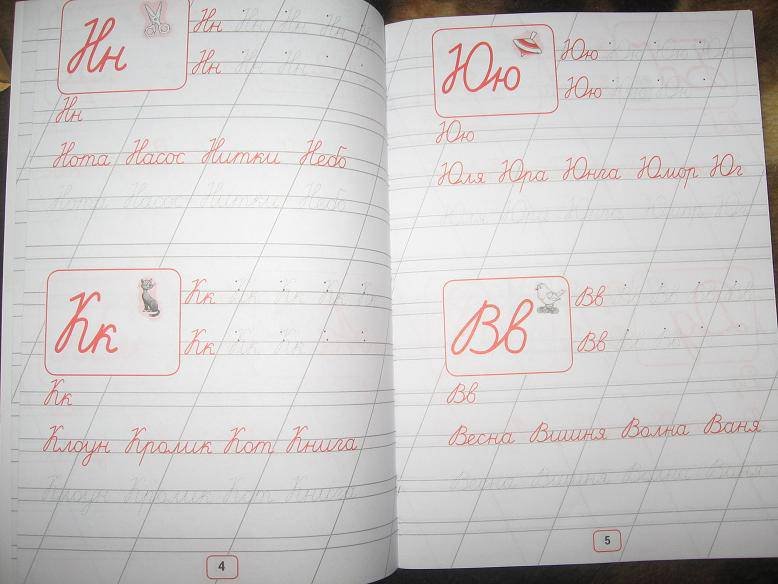 Нн Нн Нн Нн Нн Нн
Нн Нн Нн
Нн
Нота Насос Нитки Небо
Нота Насос Нитки Небо
Кк Кк Кк Кк Кк Кк
Кк Кк Кк
Кк
Клоун Кролик Кот Книга
Клоун Кролик Кот Книга
4
Юю Юю Юю Юю
Юю
Юю
Юля Юра Юнга Юмор Юг
Юля Юра Юнга Юмор Юг
Вв Вв
Вв
Вв
Весна Вишня Волна Ваня
Весна Вишня Волна Ваня
5